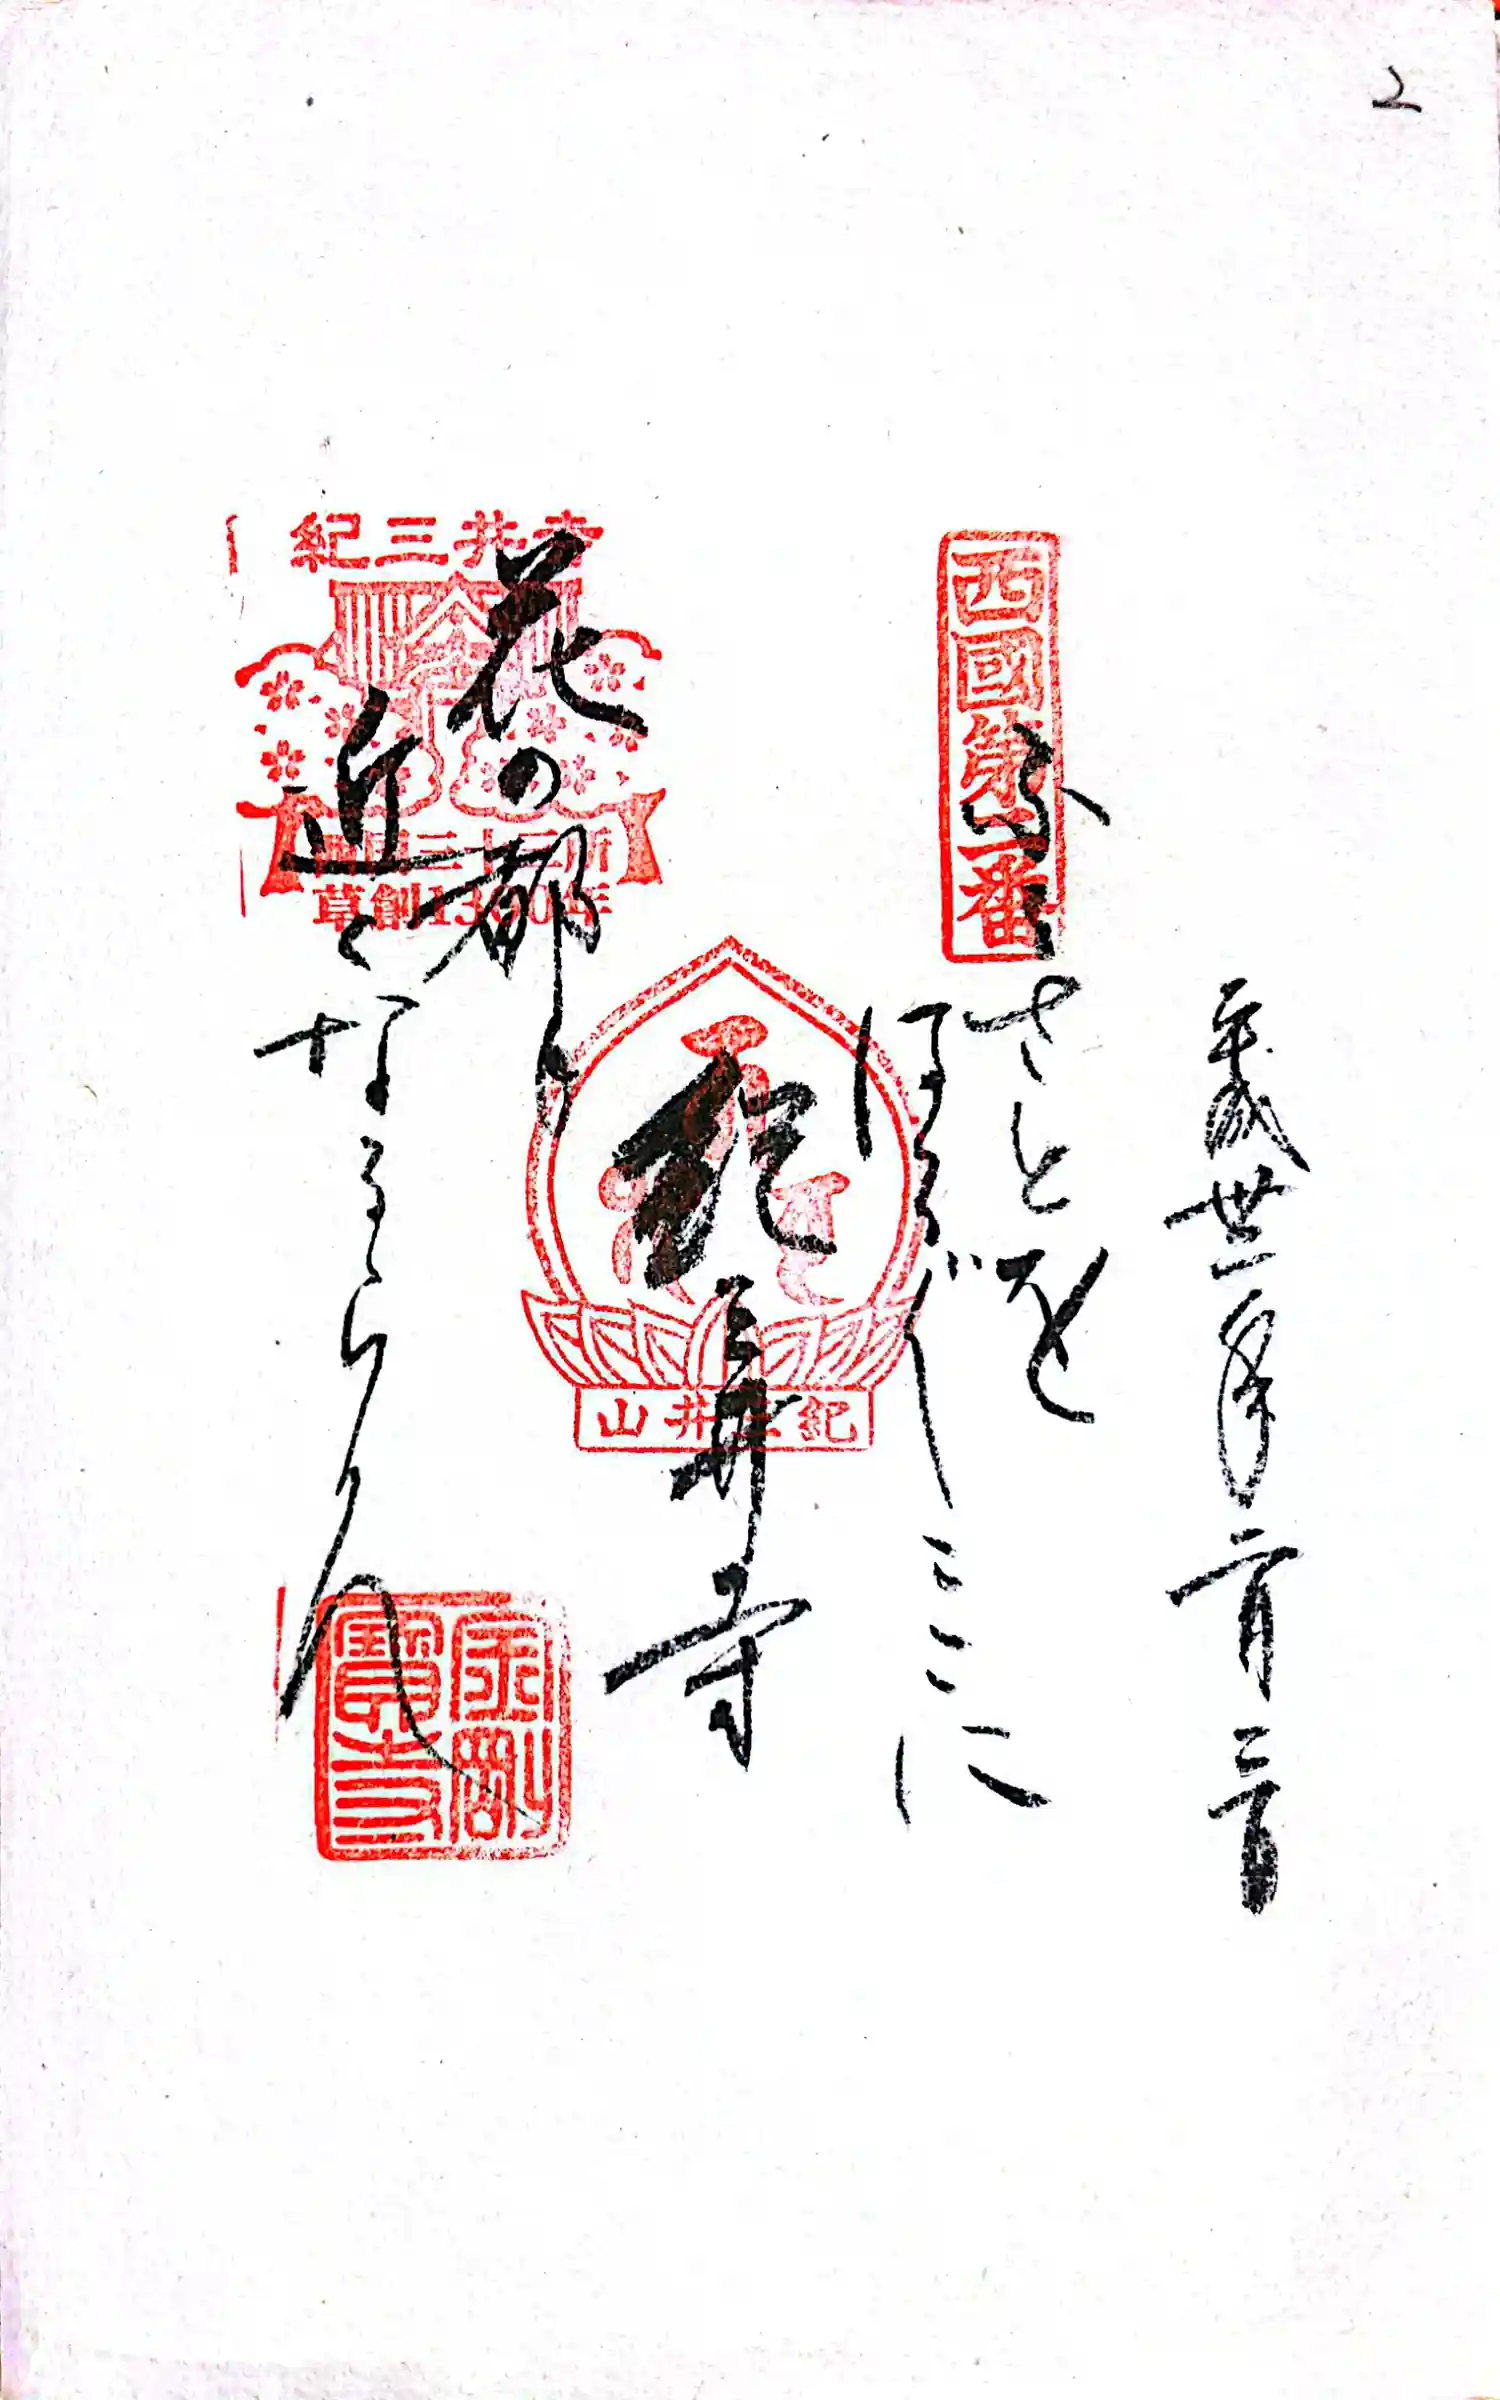 2
平成卅一年二月三日
西國第二番
ふるさとを
はるばるここに
紀三井寺
花の都も
近くなるらん
紀三井山
紀三井寺
西国三十三所
草創1300年
金剛
寳寺